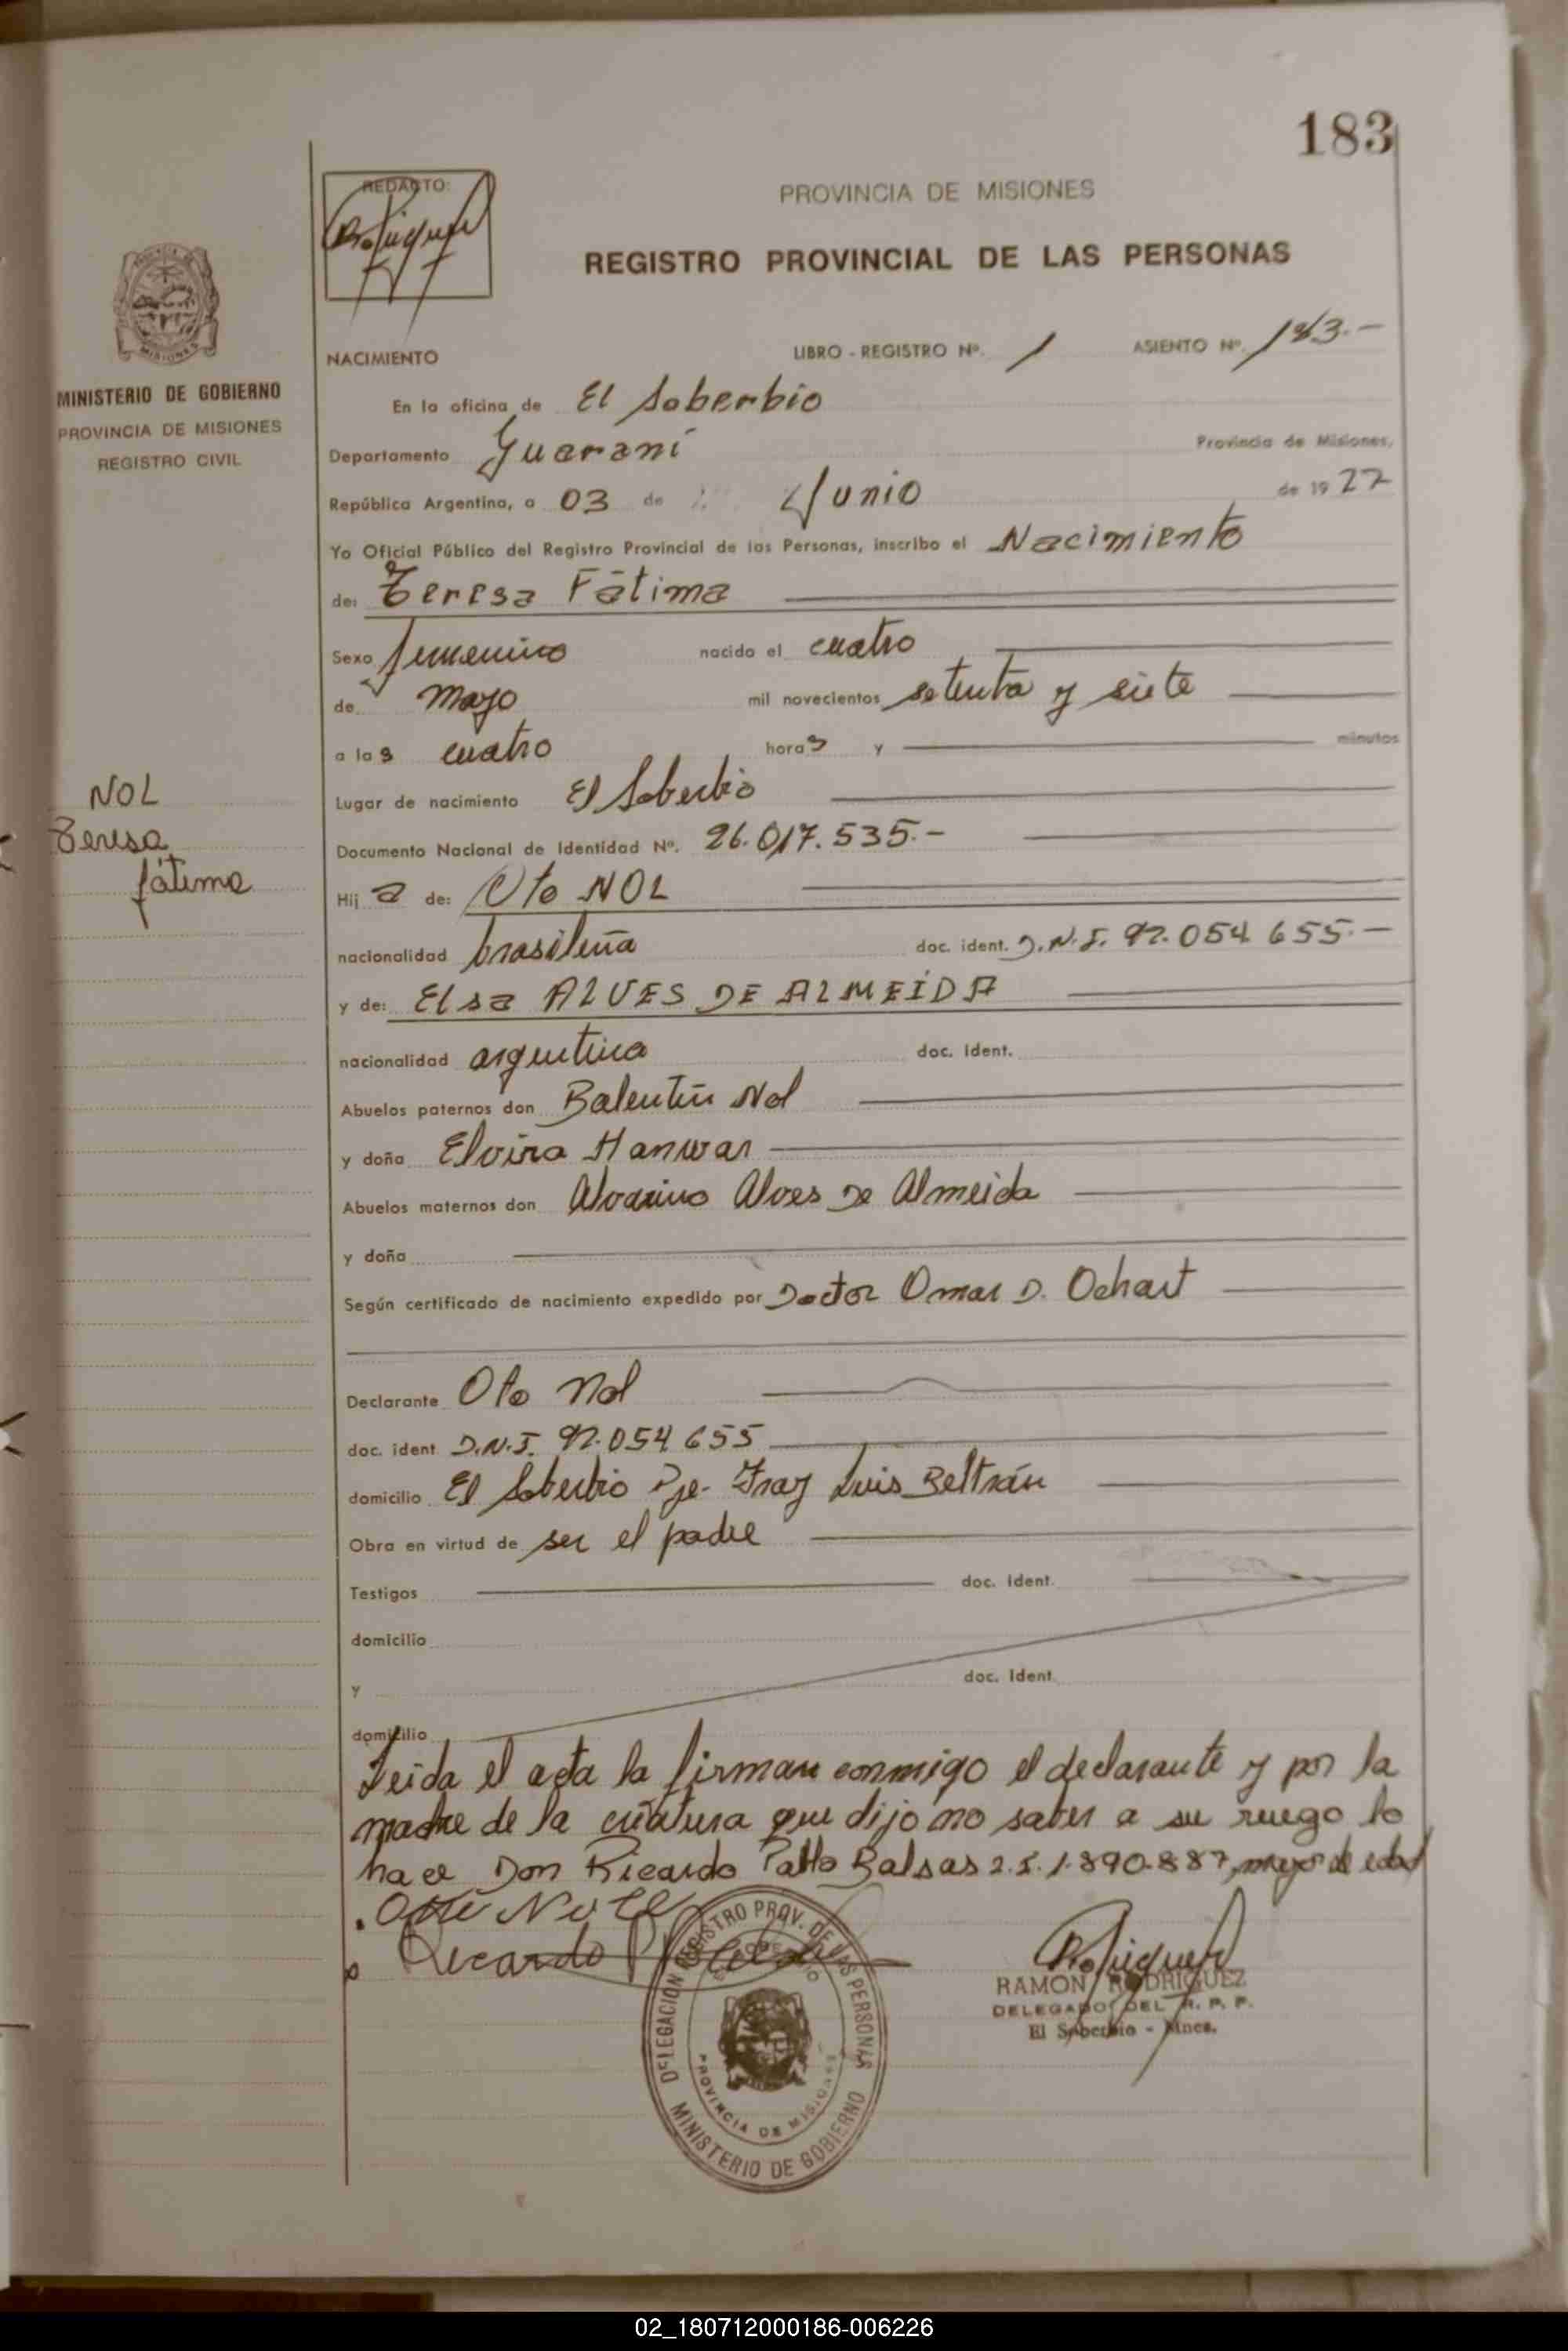 183
REDACTO:
PROVINCIA DE MISIONES
REGISTRO PROVINCIAL DE LAS PERSONAS
MISIONES
MINISTERIO DE GOBIERNO
PROVINCIA DE MISIONES
REGISTRO CIVIL
NACIMIENTO LIBRO - REGISTRO Nº. 1 ASIENTO Nº. 183.-
En la oficina de El Soberbio
Departamento Guaraní Provincia de Misiones,
República Argentina, a 03 de Junio de 1977
Yo Oficial Público del Registro Provincial de las Personas, inscribo el Nacimiento
de: Teresa Fátima
Sexo femenino nacido el cuatro
de mayo mil novecientos setenta y siete
a las cuatro horas y minutos
Lugar de nacimiento El Soberbio
Documento Nacional de Identidad Nº. 26.017.535.-
NOL
Teresa
fátima
Hij a de: Oto NOL
nacionalidad brasileña doc. ident. D.N.I. 92.054 655.-
y de: Elsa ALVES DE ALMEIDA
nacionalidad argentina doc. ident.
Abuelos paternos don Balentín Nol
y doña Elvira Hanwar
Abuelos maternos don Alvarino Alves De Almeida
y doña
Según certificado de nacimiento expedido por Doctor Omar D. Ochart
Declarante Oto Nol
doc. ident D.N.I. 92.054 655
domicilio El Soberbio Pje. Fray Luis Beltrán
Obra en virtud de ser el padre
Testigos doc. ident.
domicilio
y doc. ident.
domicilio
Leida el acta la firman conmigo el declarante y por la
madre de la criatura que dijo no saber a su ruego lo
hace Don Ricardo Pablo Balsas L.E. 1.890.887, mayor de edad
Ricardo P
DELEGACION REGISTRO PROV. DE LAS PERSONAS
MINISTERIO DE GOBIERNO
PROVINCIA DE MISIONES
RAMON RODRIGUEZ
DELEGADO DEL R. P. P.
El Soberbio - Mnes.
02_180712000186-006226